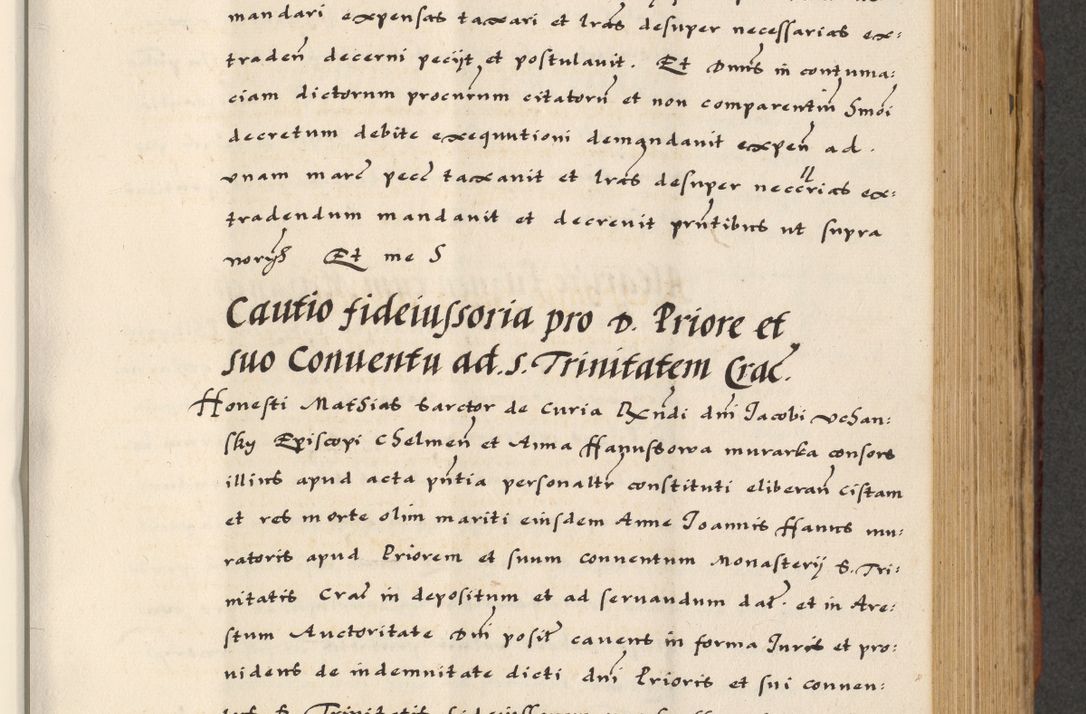 mandari expensas taxari et lras desuper necessarias ex:
traden̄ decerni pecijt et postulauit. Et Dnus in contuma:
ciam dictorum procurum citatorū et non comparentiū hmōi
decretum debite exequutioni demandauit expen̄ ad.
vnam marc pecc taxauit et lras desuper neccrias ex:
tradendum mandauit et decreuit prn̄tibus ut supra
norijs Et me S
Cautio fideiussoria pro D. Priore et
suo Conuentu ad. s. Trinitatem Crac.
Honesti Mathias Sarctor de Curia Rn̄di dni Jacobi Vchan:
sky Episcopi Chelmen̄ et Anna Hanussowa murarka consors
illius apud acta pn̄tia personaltr constituti eliberan̄ Cistam
et res morte olim mariti eiusdem Anne Joannis Hanus mu:
ratoris apud Priorem et suum conuentum Monasterij S. Tri:
nitatis Crac in depositum et ad seruandum dat. et in Are:
stum Auctoritate Dni posit cauens in forma Juris et pro:
uidens de indemnitate dicti dni Prioris et sui conuen: